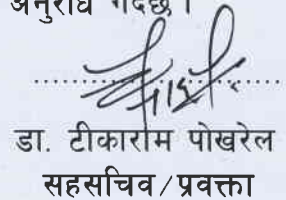 अनुरोध गर्दछ।
डा. टीकाराम पोखरेल
सहसचिव/प्रवक्ता